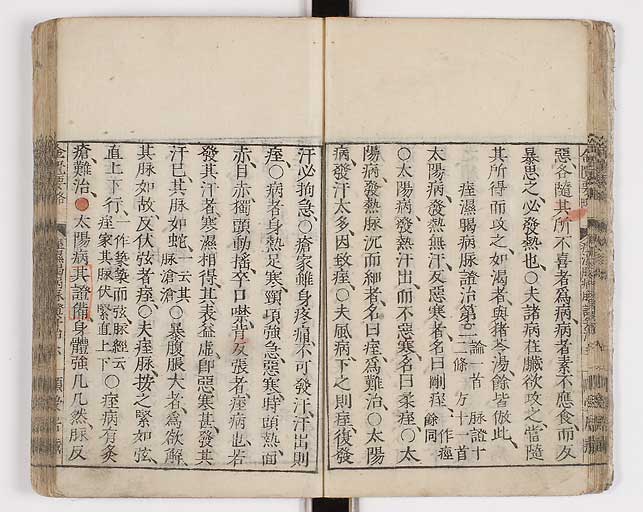 惡各隨其所不喜者爲病病者素不應食而反
暴思之必發熱也○夫諸病在臟欲攻之當隨
其所得而攻之如渴者與猪苓湯餘皆倣此
痙濕暍病脈證治第二 論一首 脈證十二條 方十一首
太陽病發熱無汗反惡寒者名曰剛痙 一作痓餘同
○太陽病發熱汗出而不惡寒名曰柔痙○太
陽病發熱脈沉而細者名曰痙爲難治○太陽
病發汗太多因致痙○夫風病下之則痙復發
汗必拘急○瘡家雖身疼痛不可發汗汗出則
痙○病者身熱足寒頸項強急惡寒時頭熱面
赤目赤獨頭動搖卒口噤背反張者痙病也若
發其汗者寒濕相得其表益虛卽惡寒甚發其
汗已其脈如蛇 一云其脈滄滄 ○暴腹脹大者爲欲解
其脈如故反伏弦者痙○夫痙脈按之緊如弦
直上下行 一作築築而弦脈經云痙家其脈伏緊直上下 ○痙病有灸
瘡難治○太陽病其證備身體強几几然脈反
金匱要略